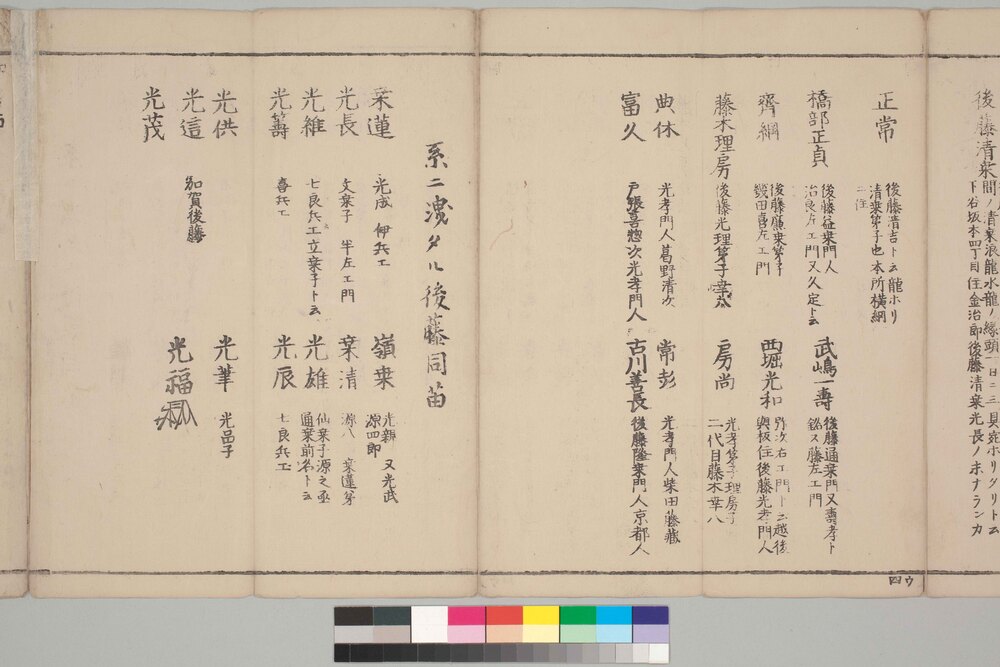 後藤清乗 間ノ清乗浪龍水龍ノ縁頭一日ニ三具宛ホリタリト云
下谷坂本四丁目住金治郎後藤清乗光長ノホナランカ
正常 後藤清吉ト云龍ホリ
清乗弟子也本所横網
ニ住
橋部正貞 後藤益乗門人
治良左エ門又久定ト云
武嶋一壽 後藤通乗門又壽孝ト
銘ス藤左エ門
齊綱 後藤廉乗弟子
幾田喜左エ門
西堀光和 弥次右エ門ト云越後
與板住後藤光孝門人
藤木理房 後藤光理弟子幸太
房尚 光孝弟子理房子
二代目藤木幸八
典休 光孝門人葛野清次
常彭 光孝門人柴田藤蔵
富久 戸張喜惣次光孝門人
古川善長 後藤隆乗門人京都人
系ニ洩タル後藤同苗
乗蓮 光成 伊兵エ
嶺乗 光親 又光武
源四郎
光長 文乗子 半左エ門
乗清 源八 乗蓮弟
光維 七良兵エ立乗子ト云
光雄 仙乗子源之丞
通乗前名ト云
光籌 喜兵エ
光辰 七良兵エ
光供
光筆 光品子
光這 加賀後藤
光福
光茂
四ウ